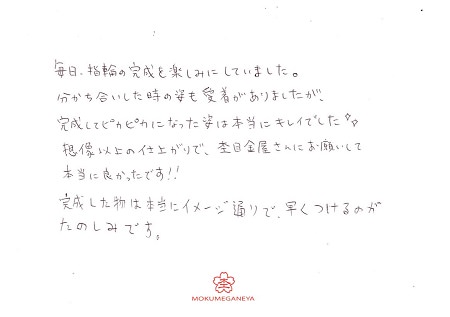 毎日、指輪の完成を楽しみにしていました。
分かち合いした時の姿も愛着がありましたが、
完成してピカピカになった姿は本当にキレイでした
想像以上の仕上がりで、杢目金屋さんにお願いして
本当に良かったです!!
完成した物は本当にイメージ通りで、早くつけるのが
たのしみです。
MOKUMEGANEYA